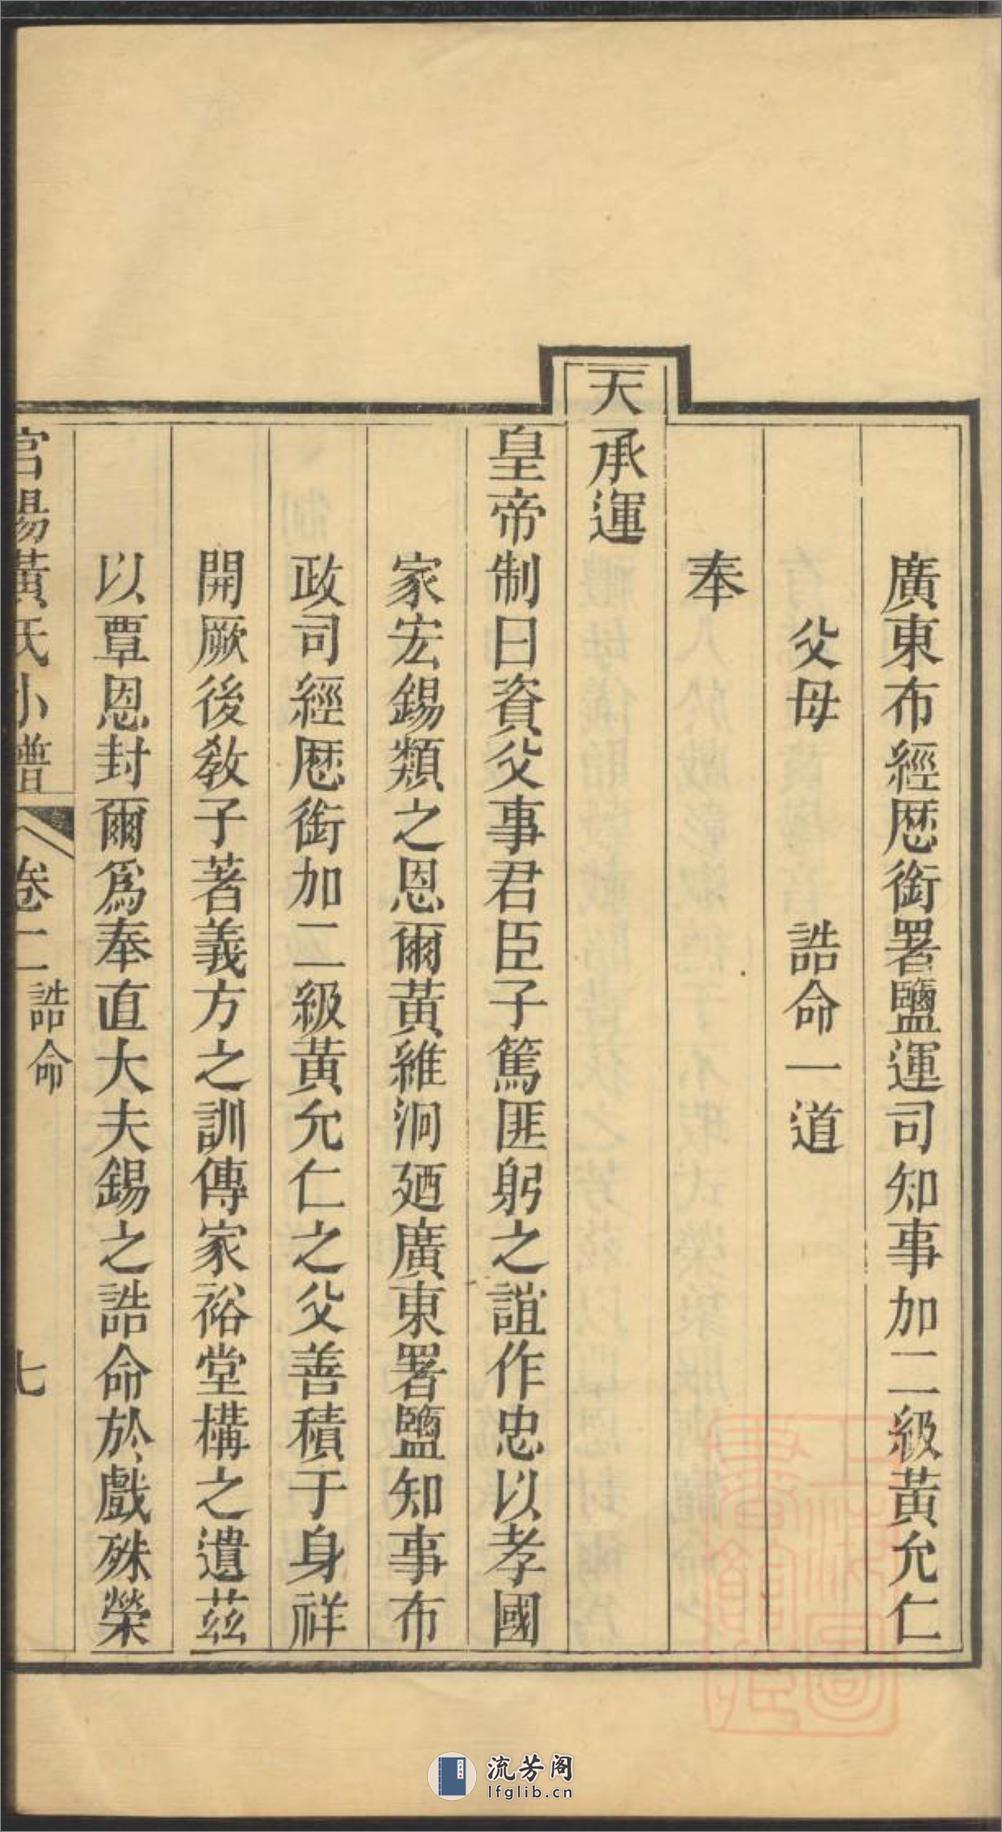 廣東布經厯銜署鹽運司知事加二級黃允仁
父母　誥命一道
奉
天承運
皇帝制曰資父事君臣子篤匪躬之誼作忠以孝國
家宏錫類之恩爾黃維泂廼廣東署鹽知事布
政司經厯銜加二級黃允仁之父善積于身祥
開厥後敎子著義方之訓傳家裕堂構之遺茲
以覃恩封爾爲奉直大夫錫之誥命於戲殊榮
黃氏小譜　卷二　誥命　七
流芳阁
lfglib.cn